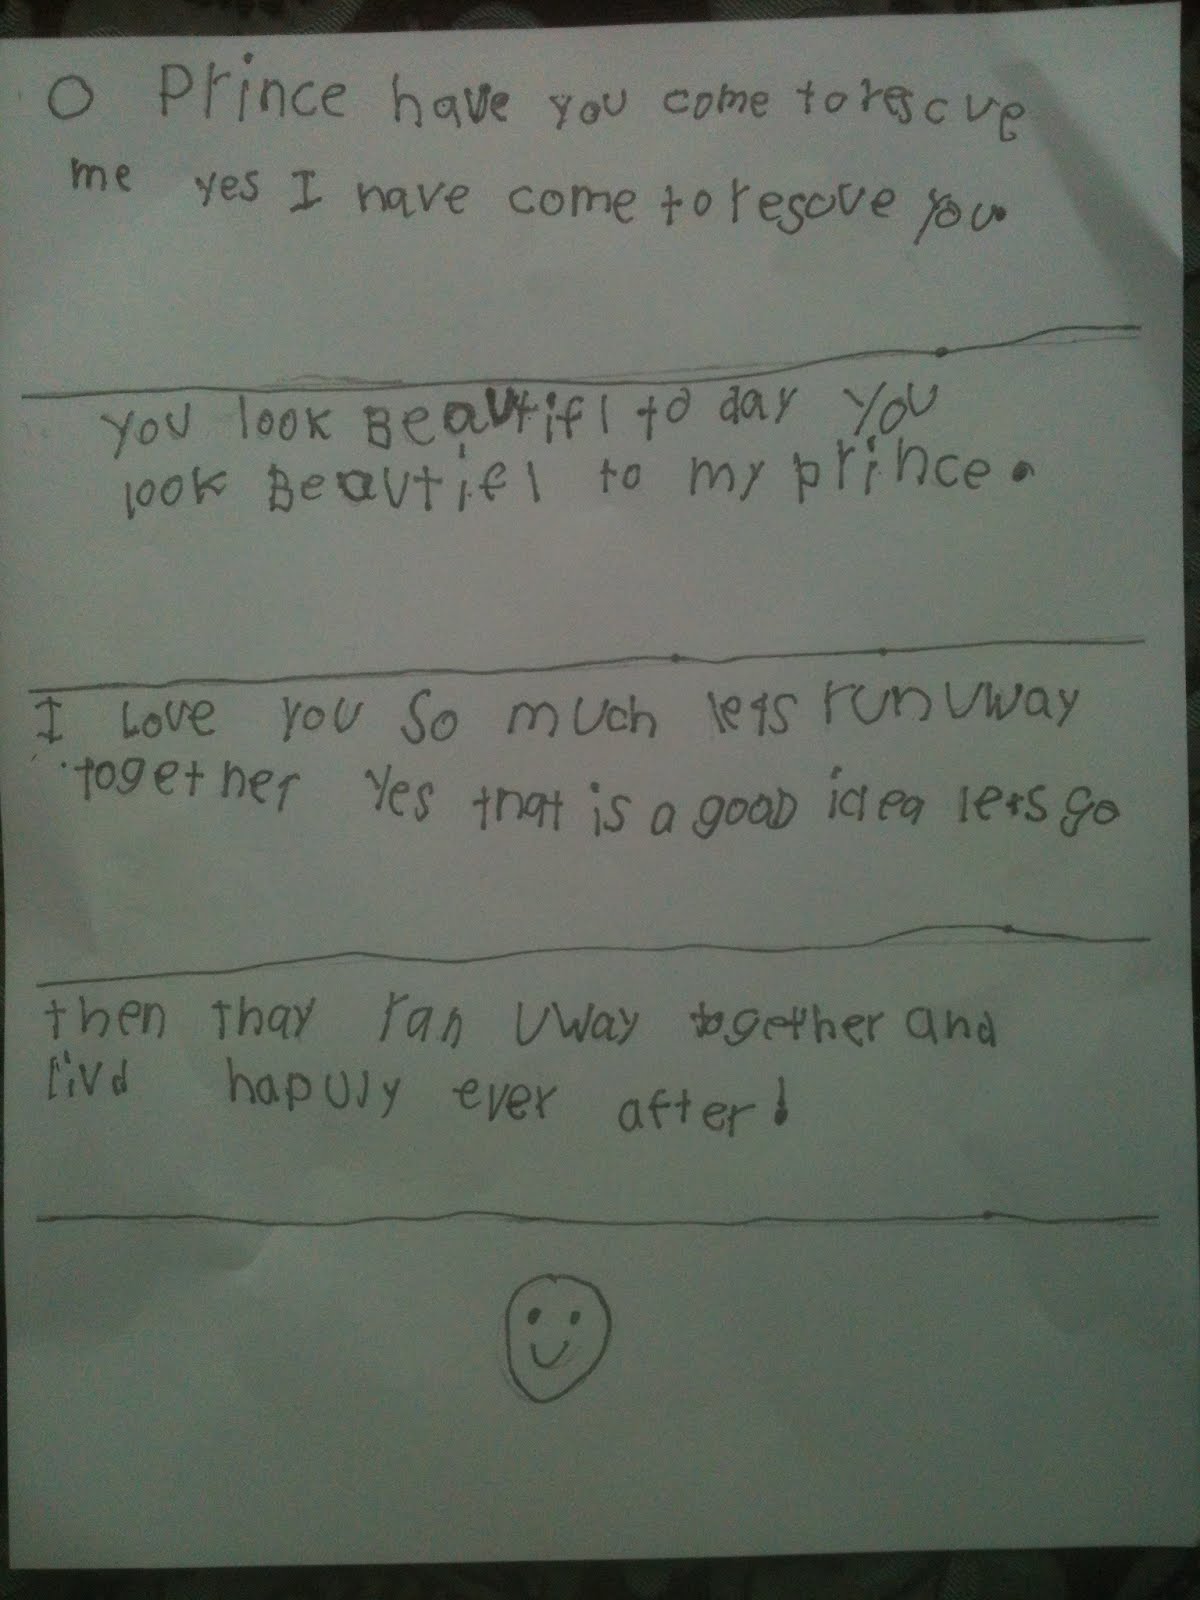 O Prince have you come to rescue
me yes I have come to rescue you.
you look Beautifl to day you
look Beautifl to my prince.
I Love you so much lets run uway
together yes that is a good idea lets go
then thay ran uway together and
livd hapuly ever after!